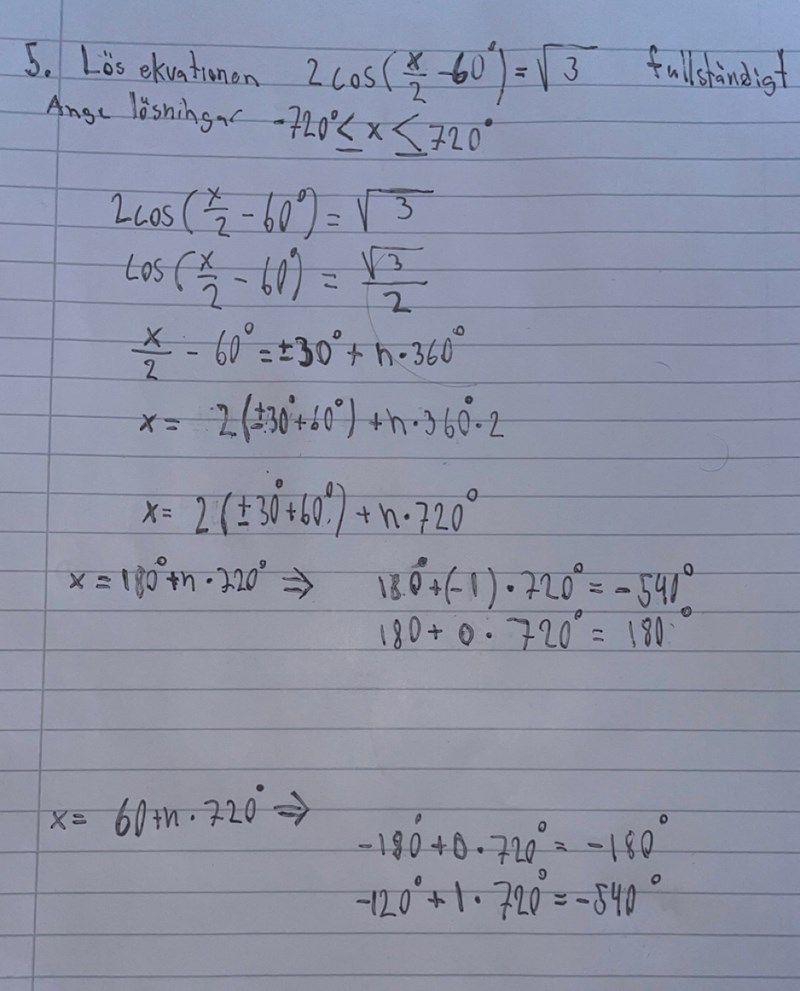 5. Lös ekvationen 2cos(x/2 - 60°) = √3 fullständigt
Ange lösningar -720° ≤ x ≤ 720°
2cos(x/2 - 60°) = √3
cos(x/2 - 60°) = √3/2
x/2 - 60° = ±30° + n·360°
x = 2(±30°+60°) + n·360°·2
x = 2(±30°+60°) + n·720°
x = 180°+n·720° ⇒ 180°+(-1)·720° = -540°
180 + 0·720° = 180°
x = 60+n·720° ⇒
-180°+0·720° = -180°
-120°+1·720° = -540°